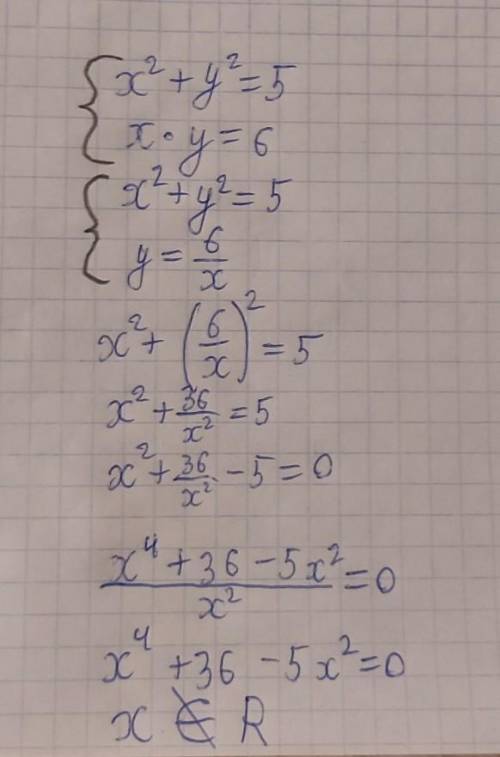 x² + y² = 5
x · y = 6
x² + y² = 5
y = 6/x
x² + (6/x)² = 5
x² + 36/x² = 5
x² + 36/x² - 5 = 0
(x⁴ + 36 - 5x²)/x² = 0
x⁴ + 36 - 5x² = 0
x ∉ R